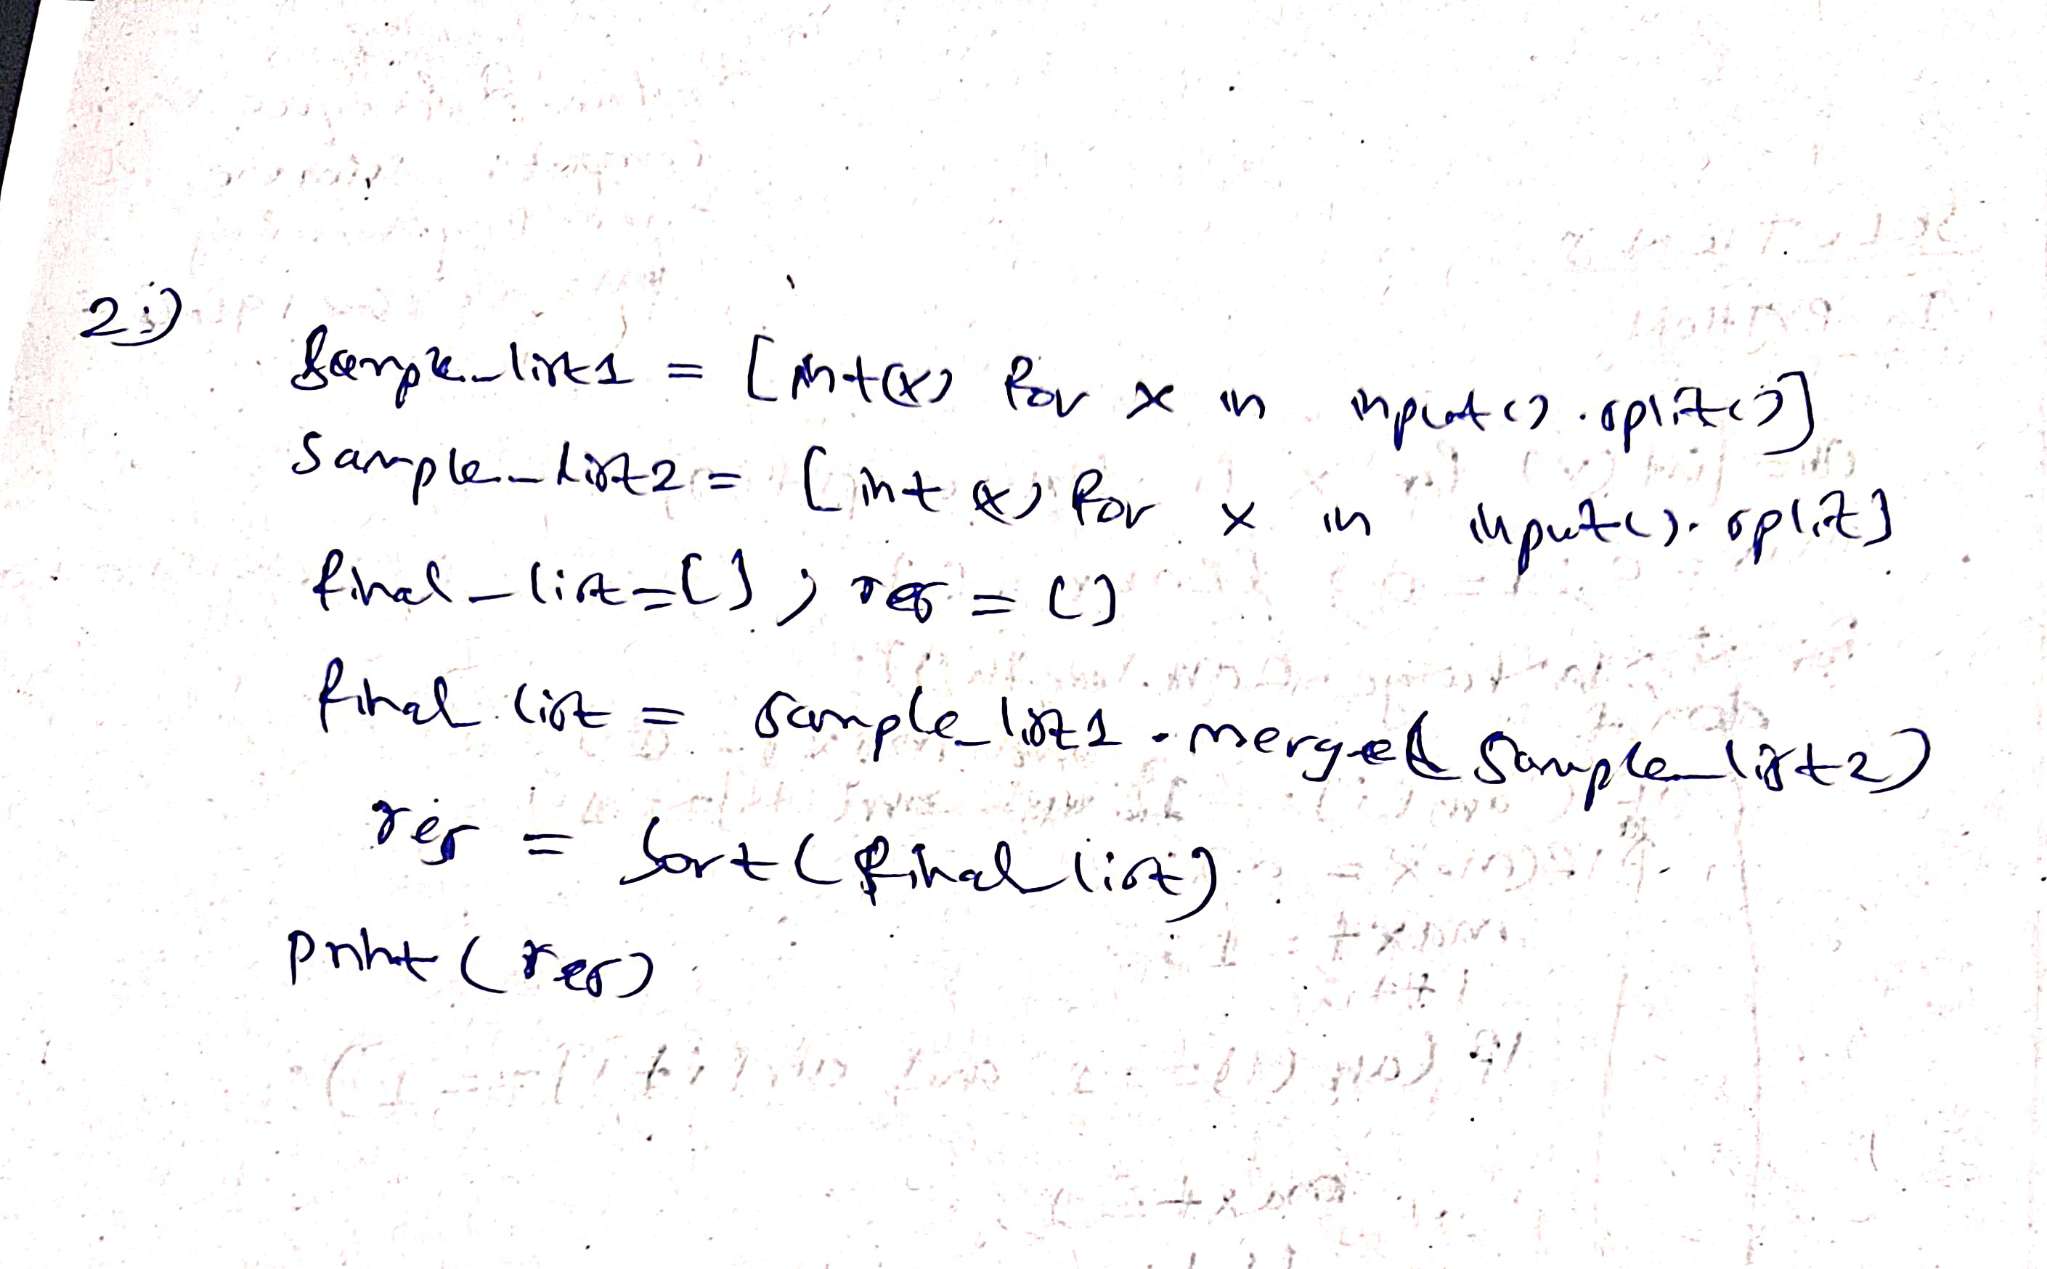 2;)
Sample_list1 = [int(x) for x in input().split()]
Sample_list2 = [int(x) for x in input().split]
final_list=[]; res = []
final list = sample_list1.merge(Sample_list2)
res = Sort(final list)
print(res)